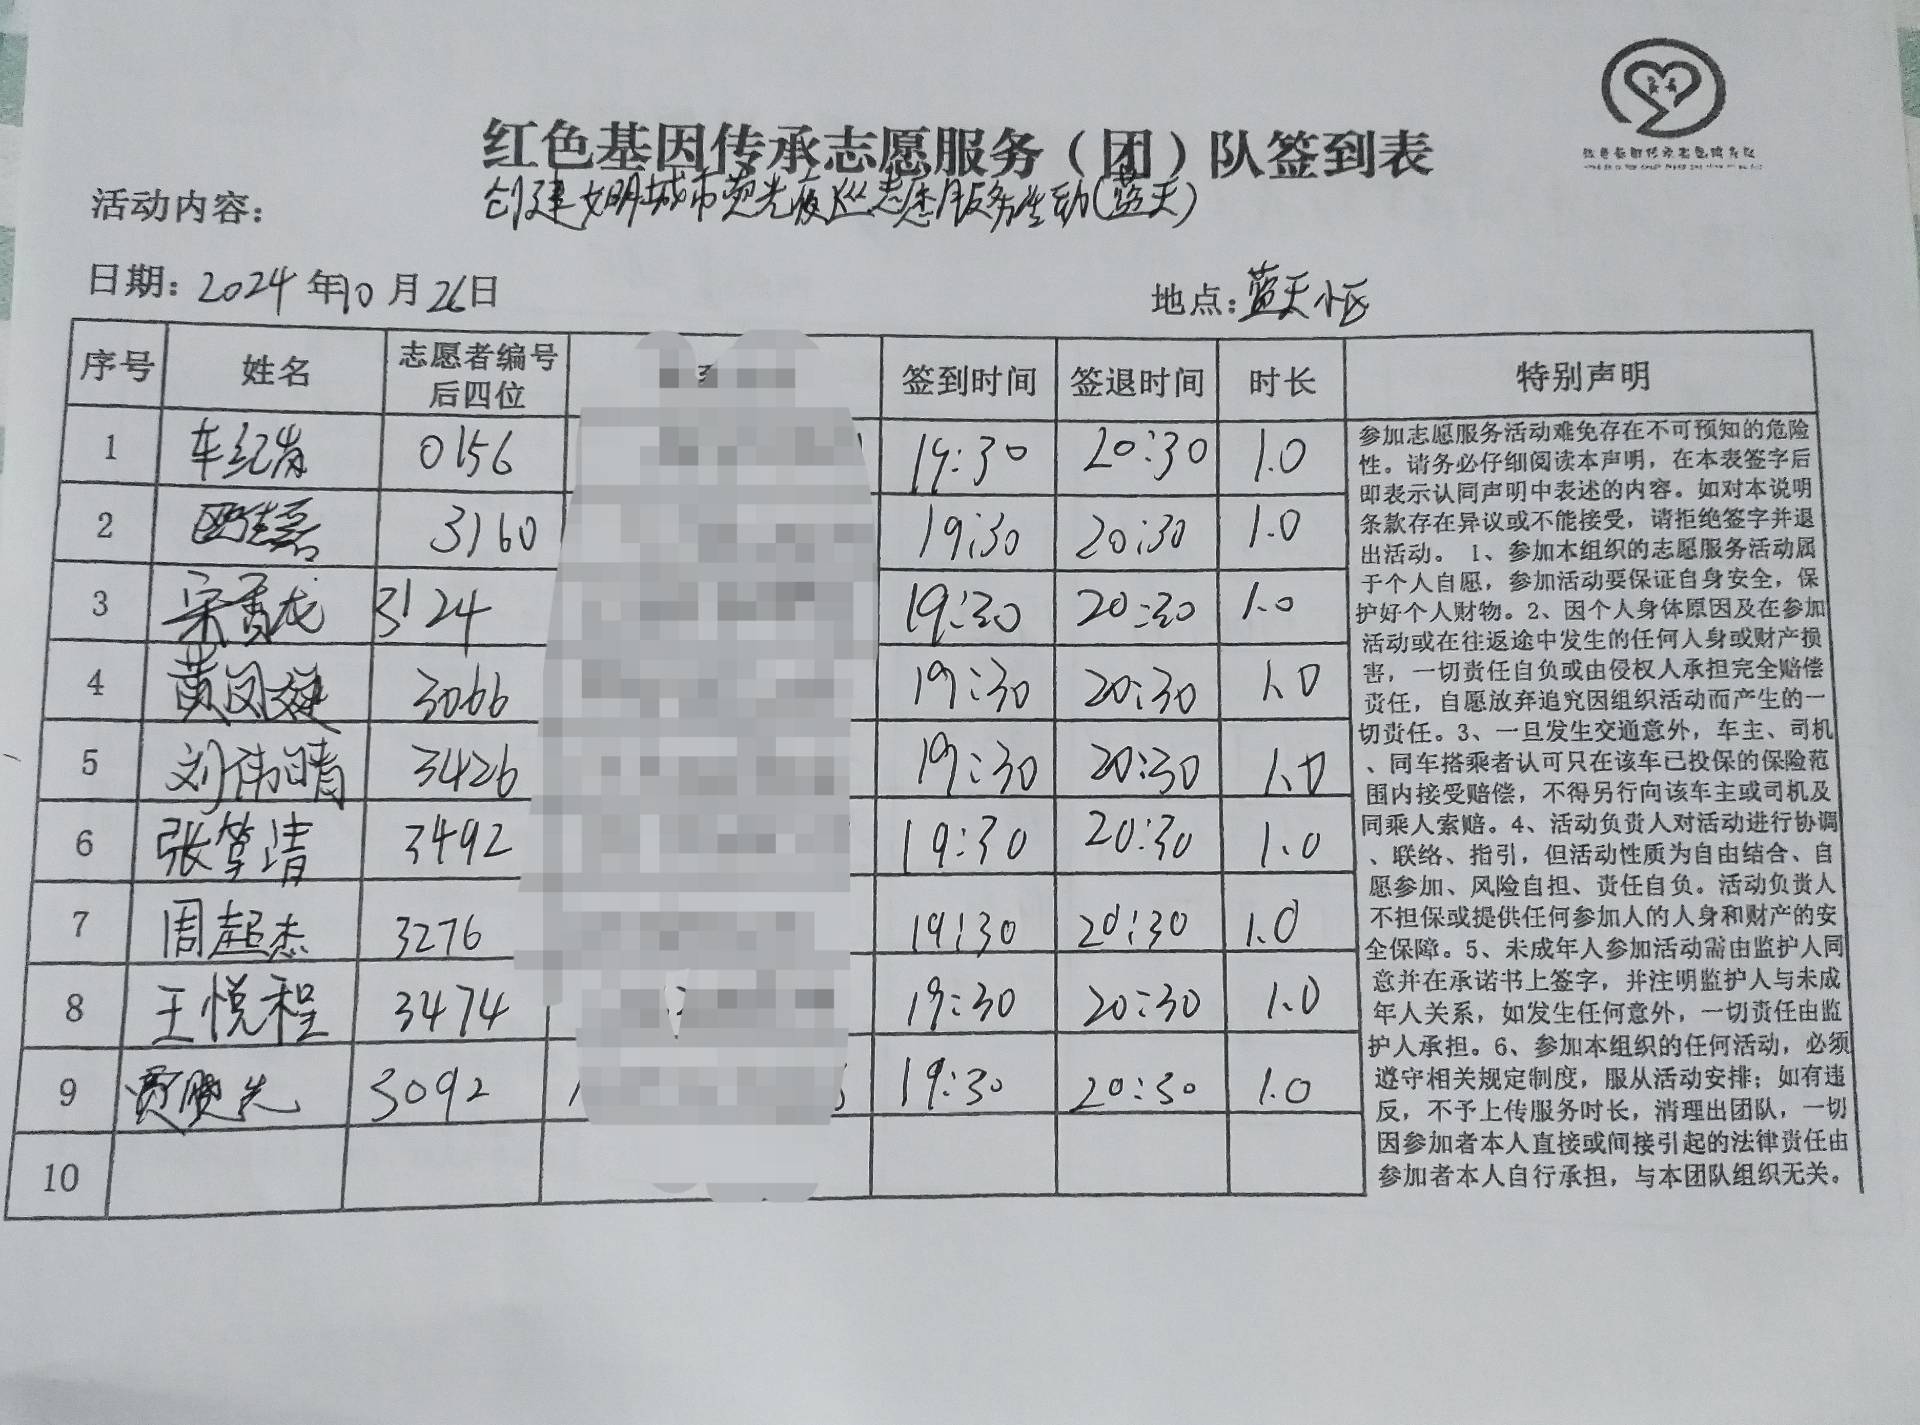 红色基因传承志愿服务（团）队签到表
活动内容： 创建文明城市荧光夜巡志愿服务活动(蓝天)
日期: 2024年10月26日 地点:蓝天小区
序号 姓名 志愿者编号后四位 签到时间 签退时间 时长 特别声明
1 0156 19:30 20:30 1.0
2 3160 19:30 20:30 1.0
3 宋青龙 3124 19:30 20:30 1.0
4 3066 19:30 20:30 1.0
5 刘伟晴 3426 19:30 20:30 1.0
6 3492 19:30 20:30 1.0
7 周超杰 3276 19:30 20:30 1.0
8 王悦程 3474 19:30 20:30 1.0
9 3092 19:30 20:30 1.0
10
参加志愿服务活动难免存在不可预知的危险
性。请务必仔细阅读本声明，在本表签字后
即表示认同声明中表述的内容。如对本说明
条款存在异议或不能接受，请拒绝签字并退
出活动。 1、参加本组织的志愿服务活动属
于个人自愿，参加活动要保证自身安全，保
护好个人财物。2、因个人身体原因及在参加
活动或在往返途中发生的任何人身或财产损
害，一切责任自负或由侵权人承担完全赔偿
责任，自愿放弃追究因组织活动而产生的一
切责任。3、一旦发生交通意外，车主、司机
、同车搭乘者认可只在该车已投保的保险范
围内接受赔偿，不得另行向该车主或司机及
同乘人索赔。4、活动负责人对活动进行协调
、联络、指引，但活动性质为自由结合、自
愿参加、风险自担、责任自负。活动负责人
不担保或提供任何参加人的人身和财产的安
全保障。5、未成年人参加活动需由监护人同
意并在承诺书上签字，并注明监护人与未成
年人关系，如发生任何意外，一切责任由监
护人承担。6、参加本组织的任何活动，必须
遵守相关规定制度，服从活动安排；如有违
反，不予上传服务时长，清理出团队，一切
因参加者本人直接或间接引起的法律责任由
参加者本人自行承担，与本团队组织无关。